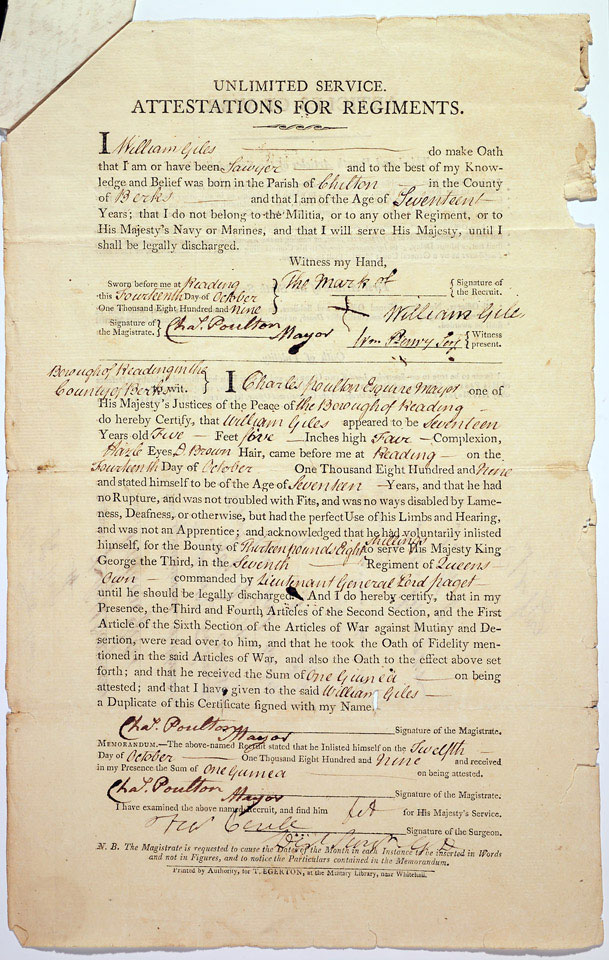 UNLIMITED SERVICE.
ATTESTATIONS FOR REGIMENTS.
I William Giles do make Oath
that I am or have been Sawyer and to the best of my Know-
ledge and Belief was born in the Parish of Chilton in the County
of Berks and that I am of the Age of Seventeen
Years; that I do not belong to the Militia, or to any other Regiment, or to
His Majesty's Navy or Marines, and that I will serve His Majesty, until I
shall be legally discharged.
Witness my Hand,
Sworn before me at Reading
this Fourteenth Day of October
One Thousand Eight Hundred and Nine
The Mark of
William Giles
Signature of
the Recruit.
Signature of
the Magistrate.
Chas. Poulton
Mayor
Wm Penny Serj
Witness
present.
Borough of Reading in the
County of Berks to wit.
I Charles Poulton Esquire Mayor one of
His Majesty's Justices of the Peace of the Borough of Reading
do hereby Certify, that William Giles appeared to be Seventeen
Years old Five Feet five Inches high Fair Complexion,
Hazle Eyes, D Brown Hair, came before me at Reading on the
Fourteenth Day of October One Thousand Eight Hundred and Nine
and stated himself to be of the Age of Seventeen Years, and that he had
no Rupture, and was not troubled with Fits, and was no ways disabled by Lame-
ness, Deafness, or otherwise, but had the perfect Use of his Limbs and Hearing,
and was not an Apprentice; and acknowledged that he had voluntarily inlisted
himself, for the Bounty of Thirteen pounds Eight Shillings to serve His Majesty King
George the Third, in the Seventh Regiment of Queens
Own commanded by Lieutenant General Lord Paget
until he should be legally discharged. And I do hereby certify, that in my
Presence, the Third and Fourth Articles of the Second Section, and the First
Article of the Sixth Section of the Articles of War against Mutiny and De-
sertion, were read over to him, and that he took the Oath of Fidelity men-
tioned in the said Articles of War, and also the Oath to the effect above set
forth; and that he received the Sum of One Guinea on being
attested; and that I have given to the said William Giles
a Duplicate of this Certificate signed with my Name.
Chas. Poulton
Mayor
Signature of the Magistrate.
MEMORANDUM.—The above-named Recruit stated that he Inlisted himself on the Twelfth
Day of October One Thousand Eight Hundred and Nine and received
in my Presence the Sum of One Guinea on being attested.
Chas. Poulton
Mayor
Signature of the Magistrate.
I have examined the above named Recruit, and find him fit for His Majesty's Service.
Signature of the Surgeon.
N. B. The Magistrate is requested to cause the Dates of the Month in each Instance to be inserted in Words
and not in Figures, and to notice the Particulars contained in the Memorandum.
Printed by Authority, for T. EGERTON, at the Military Library, near Whitehall.